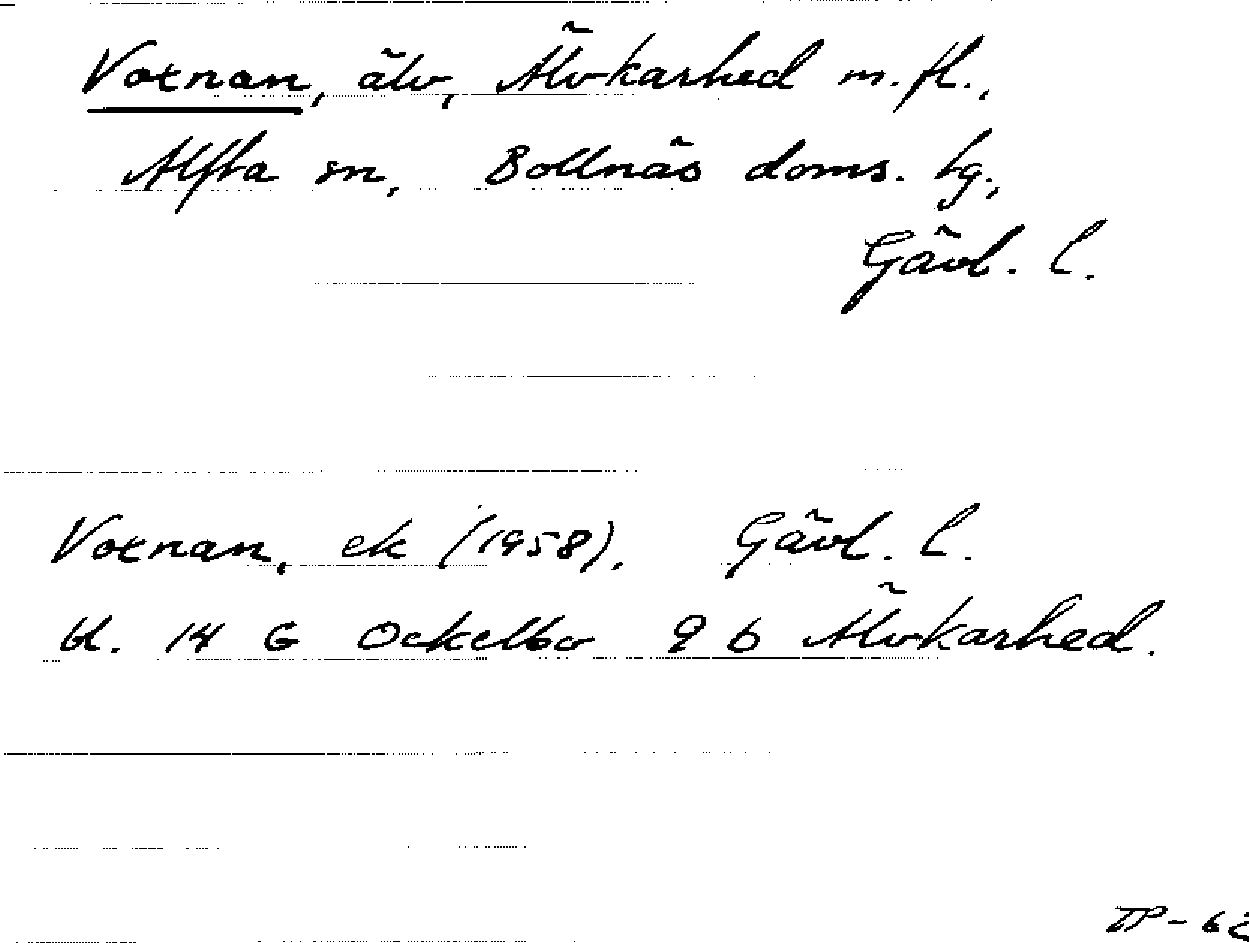 Voxnan, älv, Älvkarhed m.fl.,
Alfta sn, Bollnäs doms. tg.,
Gävl. l.
Voxnan, ek (1958), Gävl. l.
bl. 14 G Ockelbo 9 b Älvkarhed.